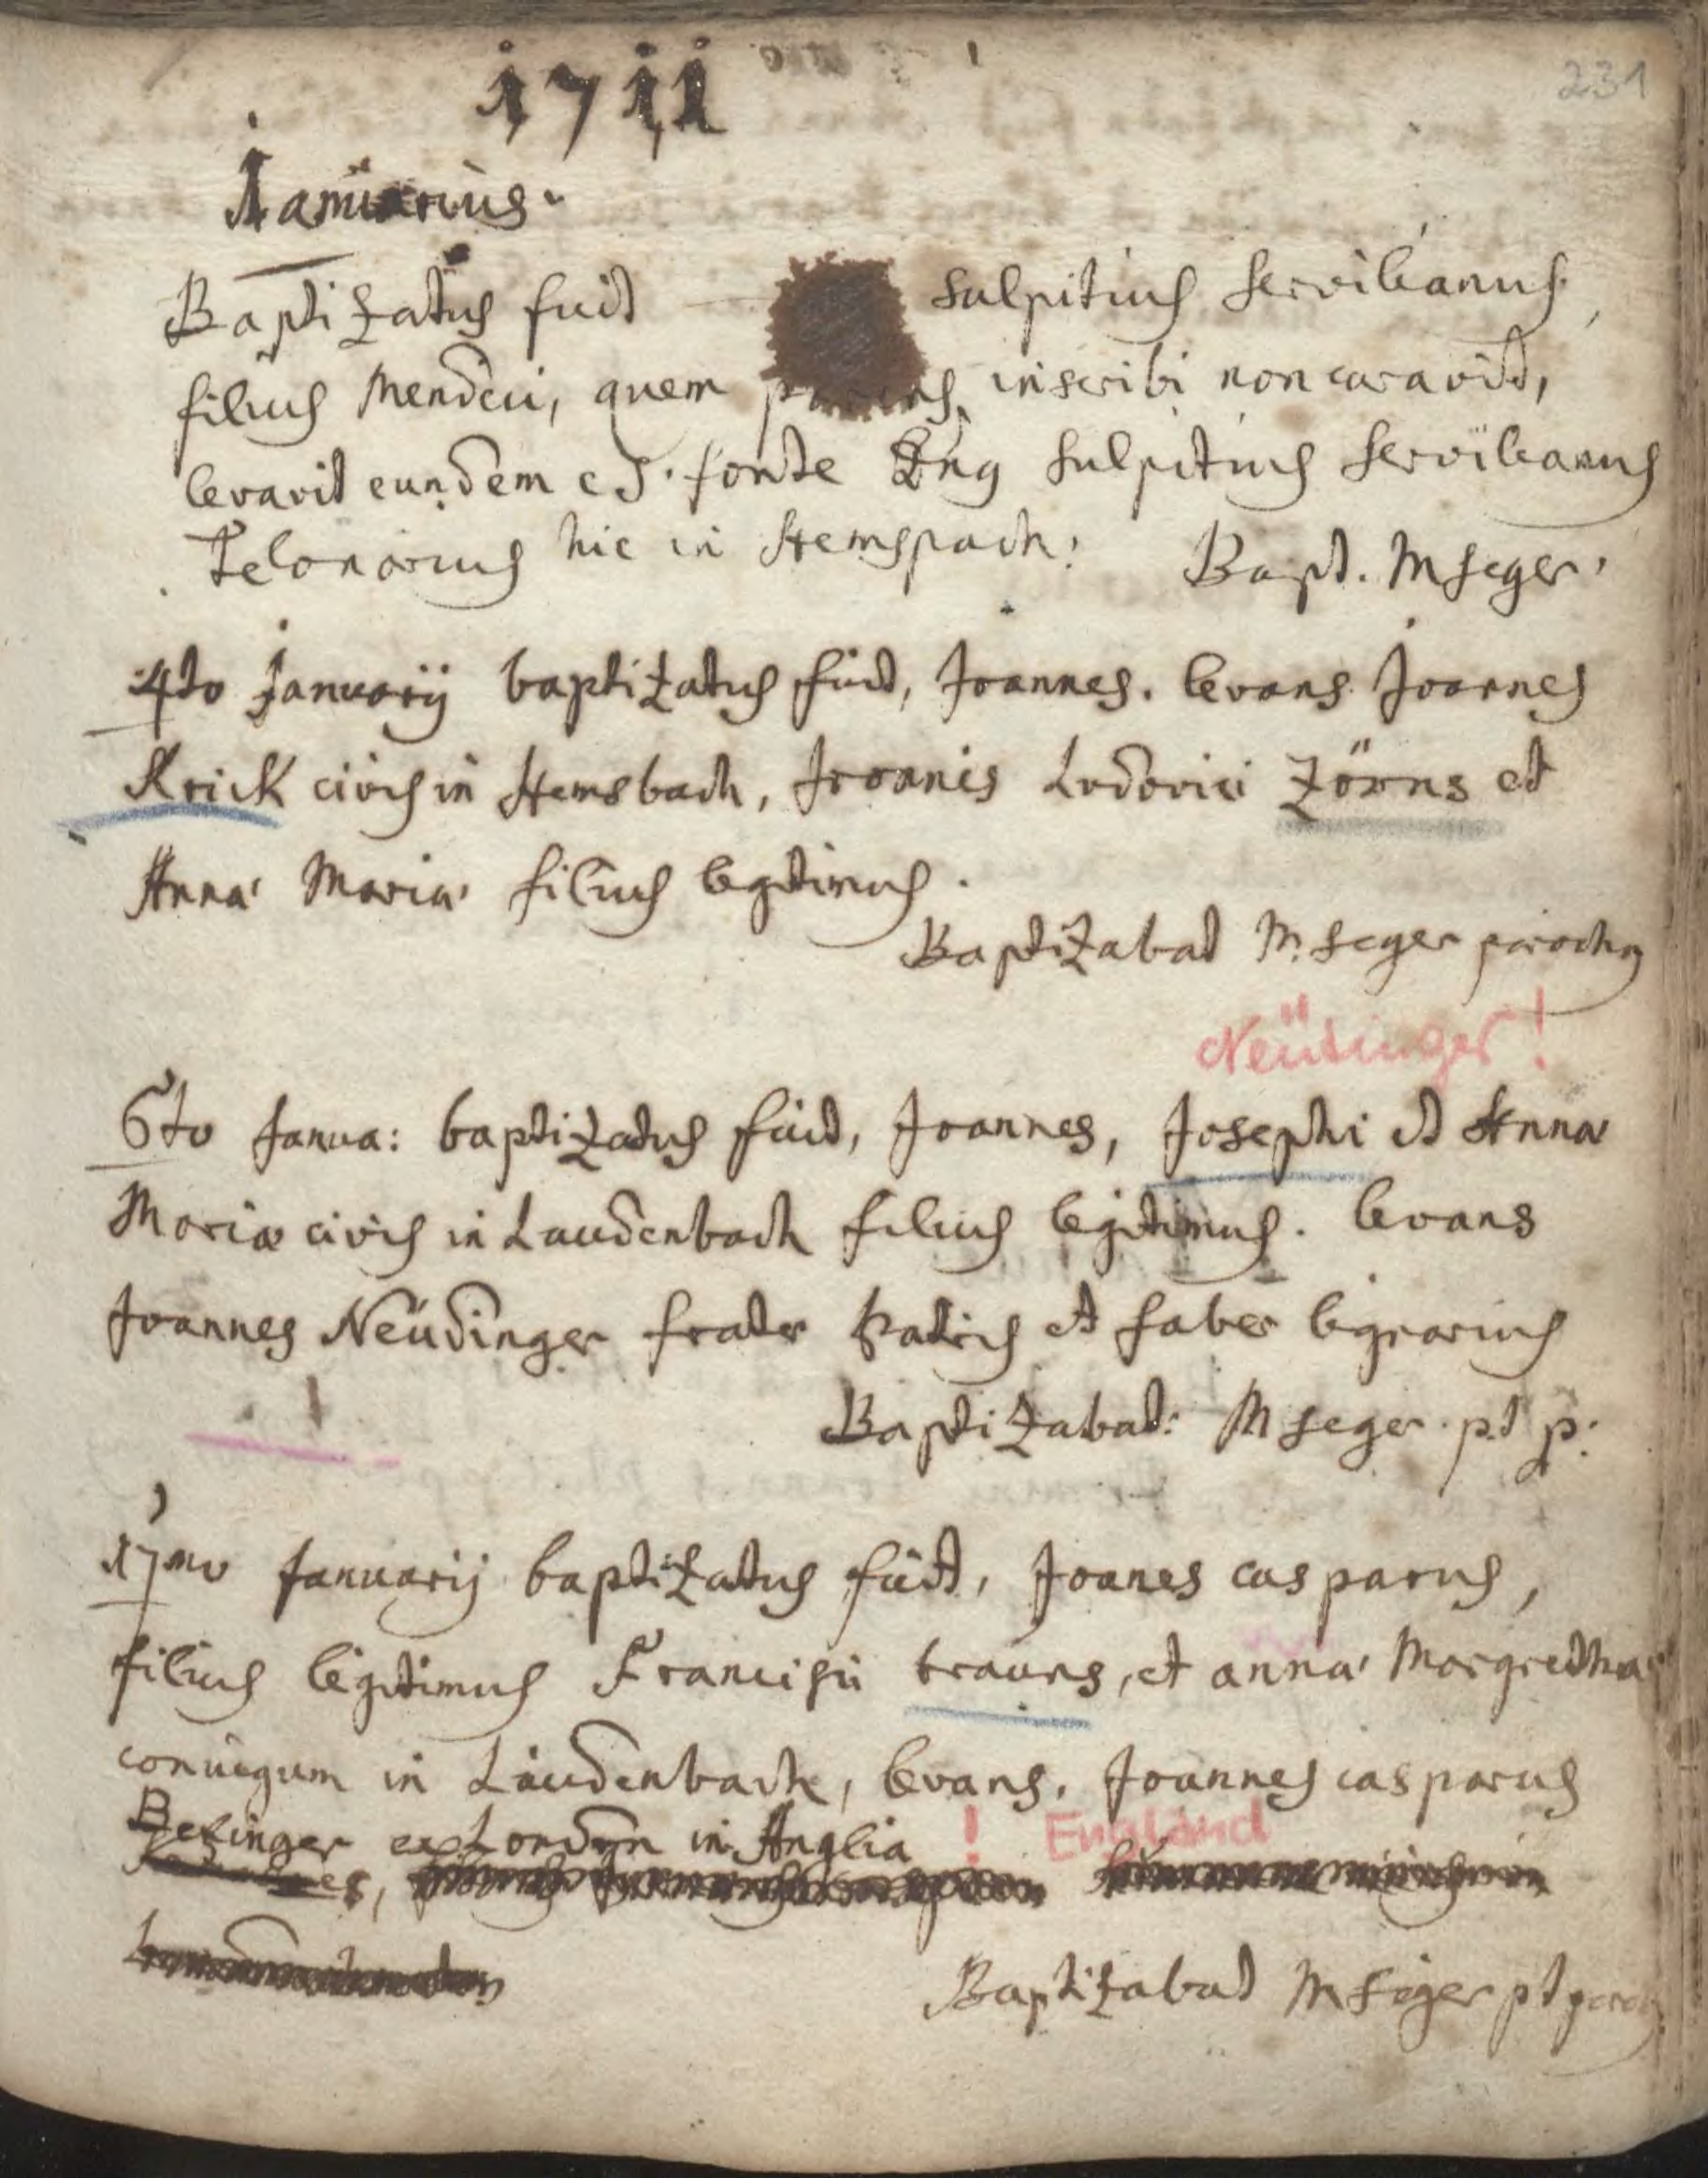 231
1711
Januarius.
Baptizatus fuit Sulpitius Servilianus,
filius Mendici, quem inscribi non curavit,
levavit eundem e S. fonte Dns Sulpitius Servilianus
Telonarius hic in Hemspach. Bapt. M Seger.
4to Januarij baptizatus fuit, Joannes. levans Joannes
Krick civis in Hemsbach, Joannis Ludovici Zörns et
Anna Maria filius legitimus.
Baptizabat M. Seger parochus
Neüdinger!
6to Janua: baptizatus fuit, Joannes, Josephi et Annæ
Mariæ civis in Laudenbach filius legitimus. levans
Joannes Neüdinger frater Patris et faber lignarius
Baptizabat: M Seger. p.t. p:
17mo Januarij baptizatus fuit, Joanes casparus,
filius legitimus Francisci brauns, et anna Margretha
coniugum in Laudenbach, levans, Joannes casparus
Betzinger ex Londyn in Anglia ! England
Baptizabat M Seger pt paroch